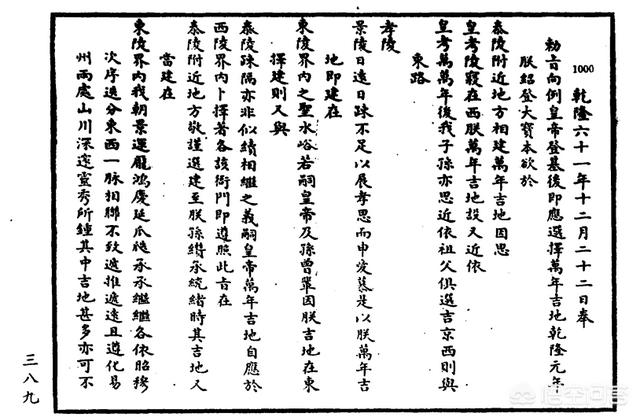 1000
乾隆六十一年十二月二十二日奉
勅旨向例皇帝登基後即應選擇萬年吉地乾隆元年
朕紹登大寶本欲於
泰陵附近地方相建萬年吉地因思
皇考陵寢在西朕萬年吉地設又近依
皇考萬萬年後我子孫亦思近依祖父俱選吉京西則與
東路
孝陵
景陵日遠日疎不足以展孝思而申愛慕是以朕萬年吉
地即建在
東陵界內之聖水峪若嗣皇帝及孫曾輩因朕吉地在東
擇建則又與
泰陵疎隔亦非似續相繼之義嗣皇帝萬年吉地自應於
西陵界內卜擇著各該衙門即遵照此旨在
泰陵附近地方敬謹選建至朕孫纘承統緒時其吉地又
當建在
東陵界內我朝景運龐鴻慶延瓜瓞承承繼繼各依昭穆
次序迭分東西一脉相聯不致遞推遞遠且遵化易
州兩處山川深邃靈秀所鍾其中吉地甚多亦可不
三八九
悟空问答